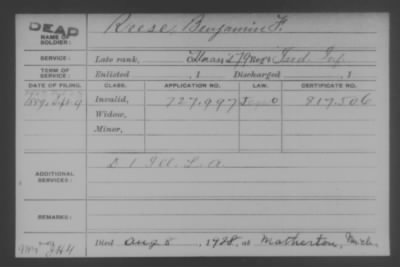 DEAD
NAME OF SOLDIER: Reese, Benjamin F.
SERVICE: Late rank, 279 Regt Ind. Inf.
TERM OF SERVICE: Enlisted , 1 Discharged , 1
DATE OF FILING. CLASS. APPLICATION NO. LAW. CERTIFICATE NO.
1889, Sept. 9 Invalid, 727.997 817.506
Widow,
Minor,
ADDITIONAL SERVICES: D 1 Ill. L. A.
REMARKS:
Died Aug 5 , 1928, at Matherton, Mich.